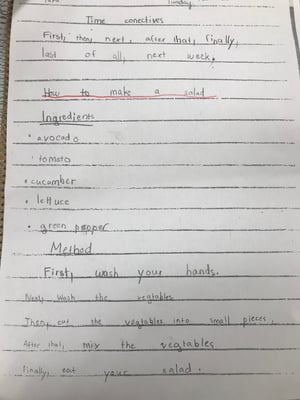 Tuesday
Time conectives
First, then, next, after that, finally,
last of all, next week.
How to make a salad
Ingredients
• avocado
• tomato
• cucumber
• lettuce
• green pepper
Method
First, wash your hands.
Next, Wash the vegtables
Then, cut the vegtables into small pieces.
After that, mix the vegtables
Finally, eat your salad.